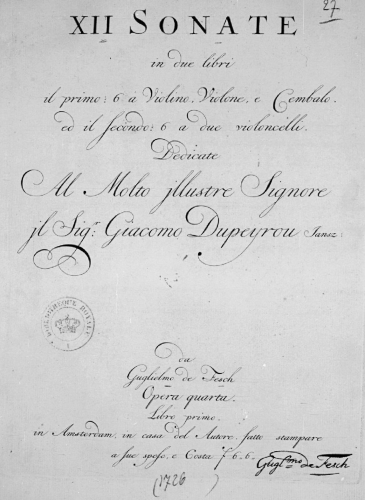 27
XII SONATE
in due libri
il primo: 6 a Violino, Violone, e Cembalo.
ed il secondo: 6 a due violoncelli.
Dedicate
Al Molto jllustre Signore
jl Sigr: Giacomo Dupeyrou Jansz:
BIBLIOTHEQUE ROYALE
da
Guglielmo de Fesch
Opera quarta.
Libro primo.
in Amsterdam, in casa del Autore, fatto stampare
a sue spese, e Costa f 6.6.
Gugl.mo de Fesch
(1726